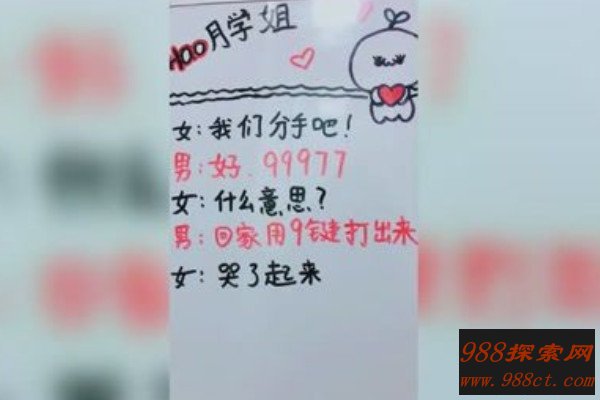 400月学姐
女:我们分手吧!
男:好.99977
女:什么意思?
男:回家用9键打出来
女:哭了起来
988探索网
www.988ct.com